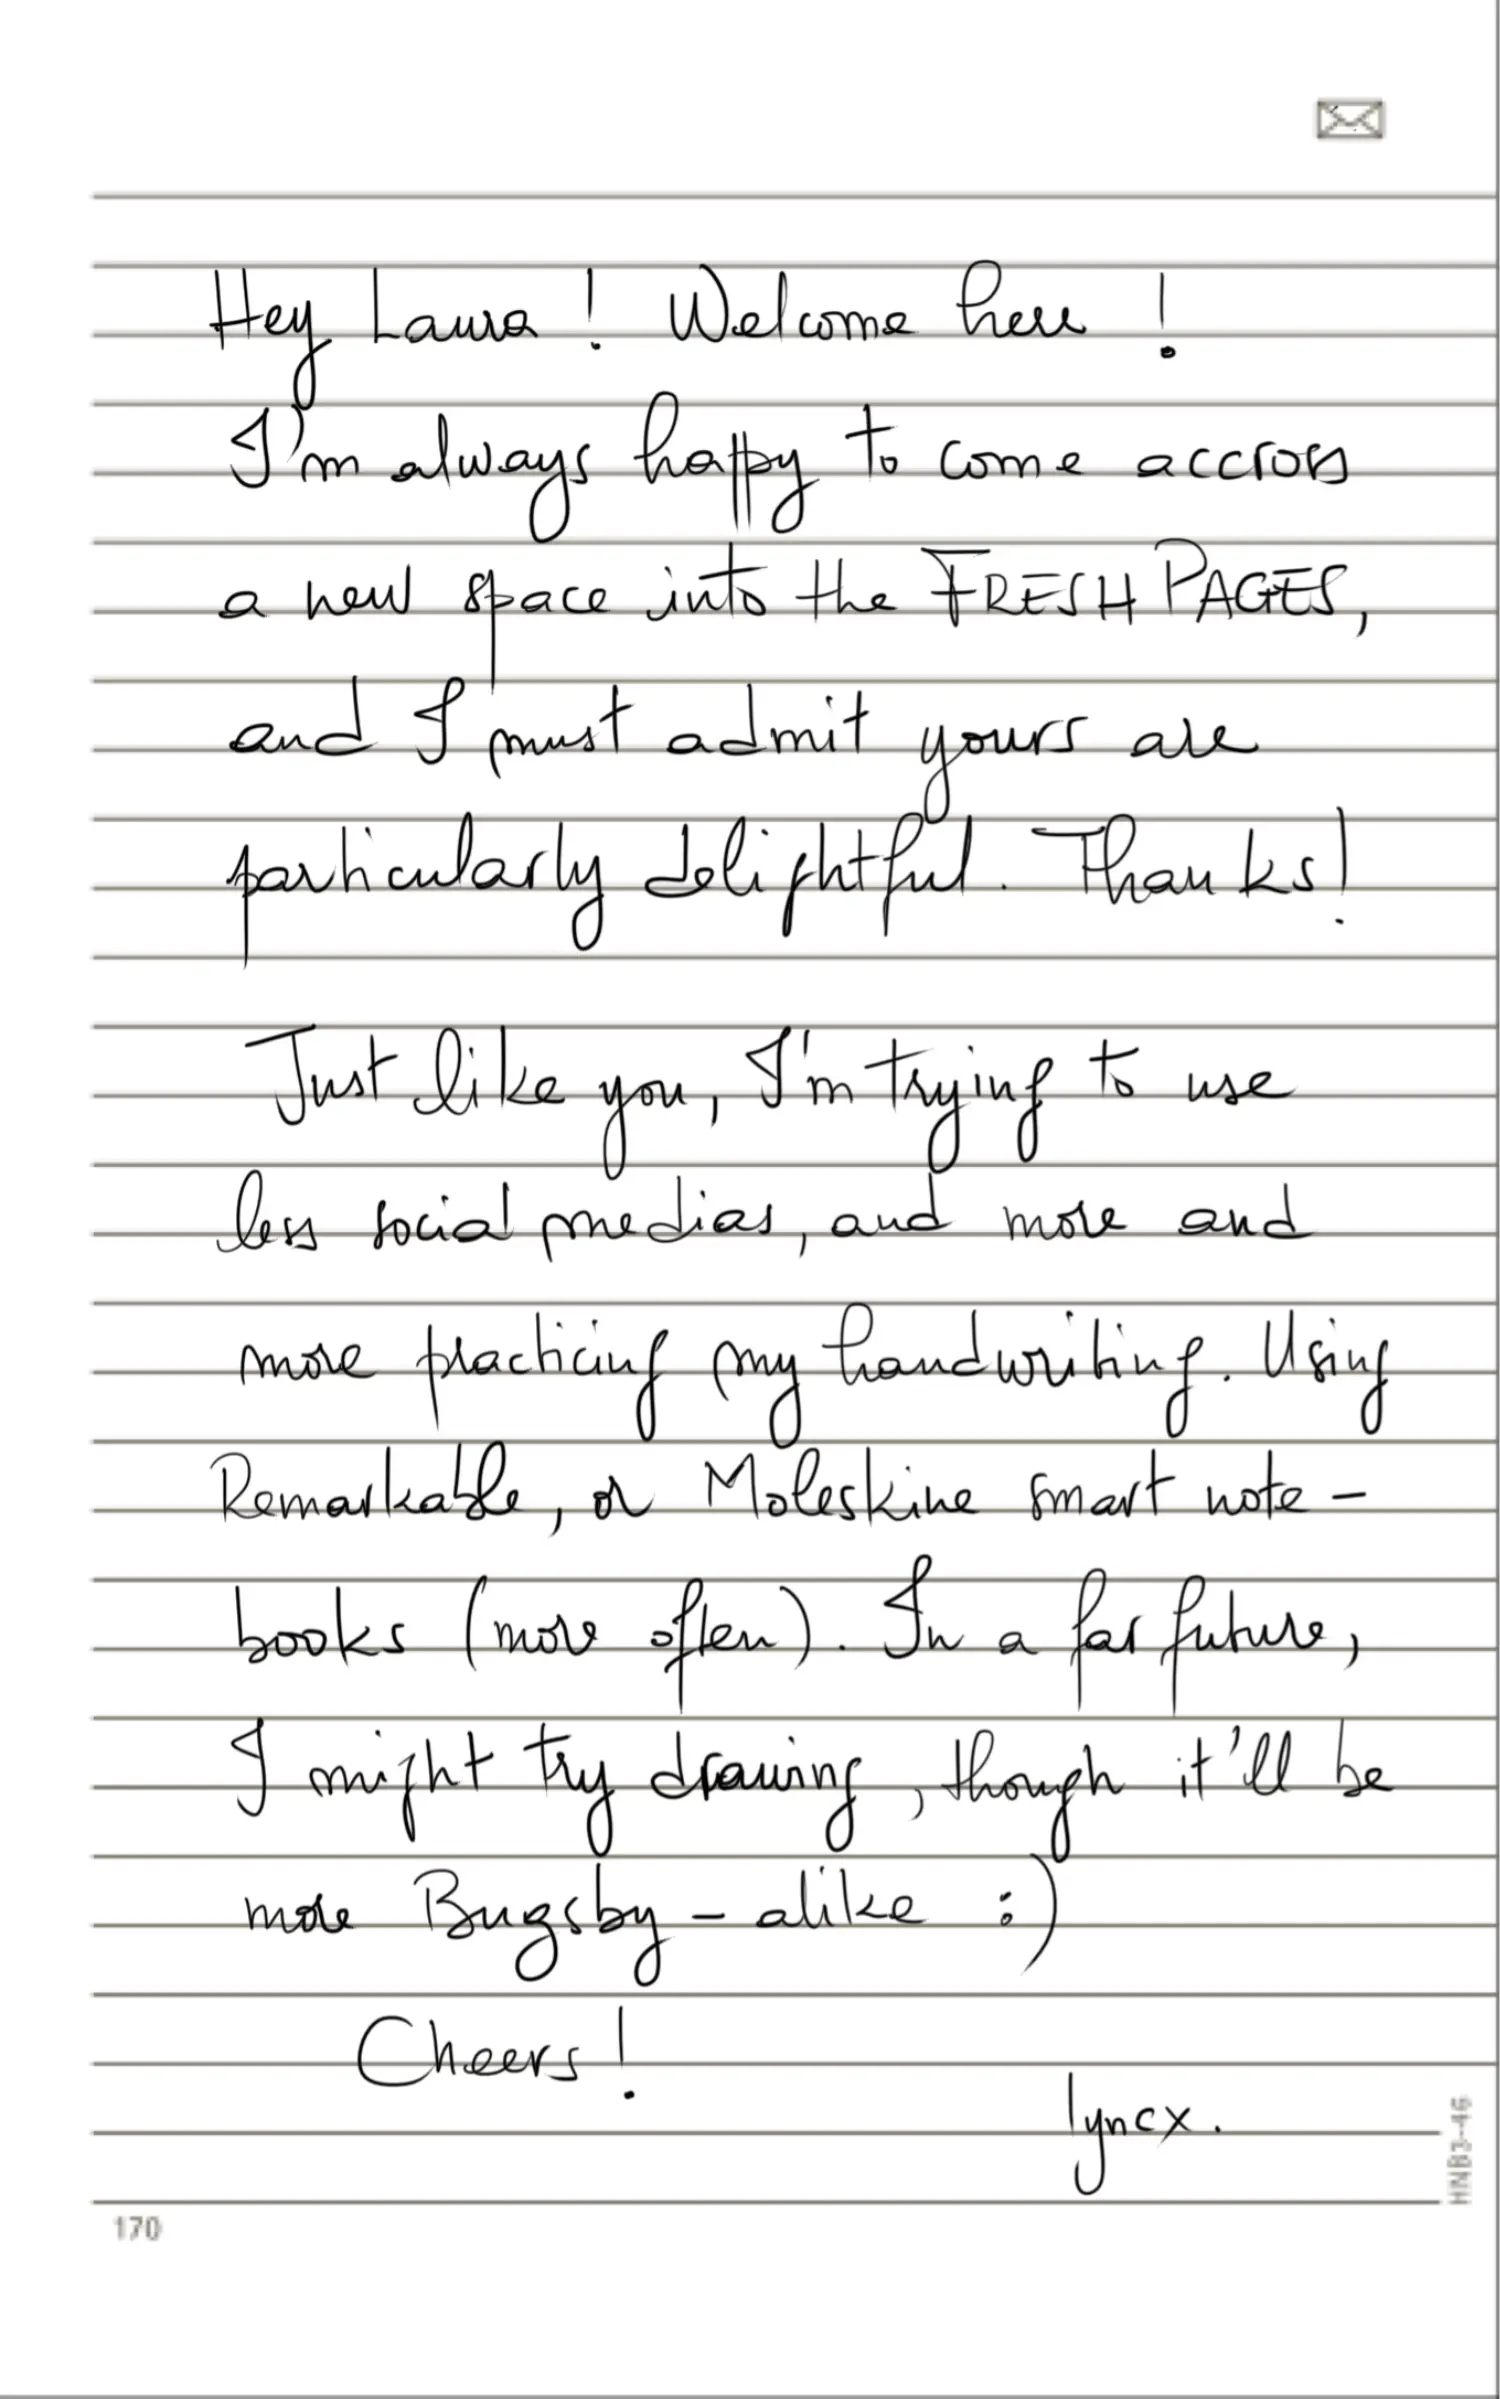 Hey Laura ! Welcome here !
I'm always happy to come accross
a new space into the FRESH PAGES,
and I must admit yours are
particularly delightful. Thanks!
Just like you, I'm trying to use
less social medias, and more and
more practicing my handwriting. Using
Remarkable, or Moleskine smart note-
books (more often). In a far future,
I might try drawing, though it'll be
more Bugsby-alike :)
Cheers!
lyncx.
HNB3-46
170